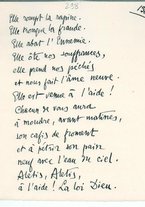 238
Elle rompt la rapine.
Elle tronque la fraude.
Elle abat l'Ennemie.
Elle ôte nos souffrances,
elle prend nos péchés
et nous fait l'âme neuve.
Elle est venue à l'aide !
Chacun se vous aura
à moudre, avant matines,
son cafis de froment
et à pétrir son pain
neuf avec l'eau du ciel.
Alétis, Alétis,
à l'aide ! La loi Dieu.